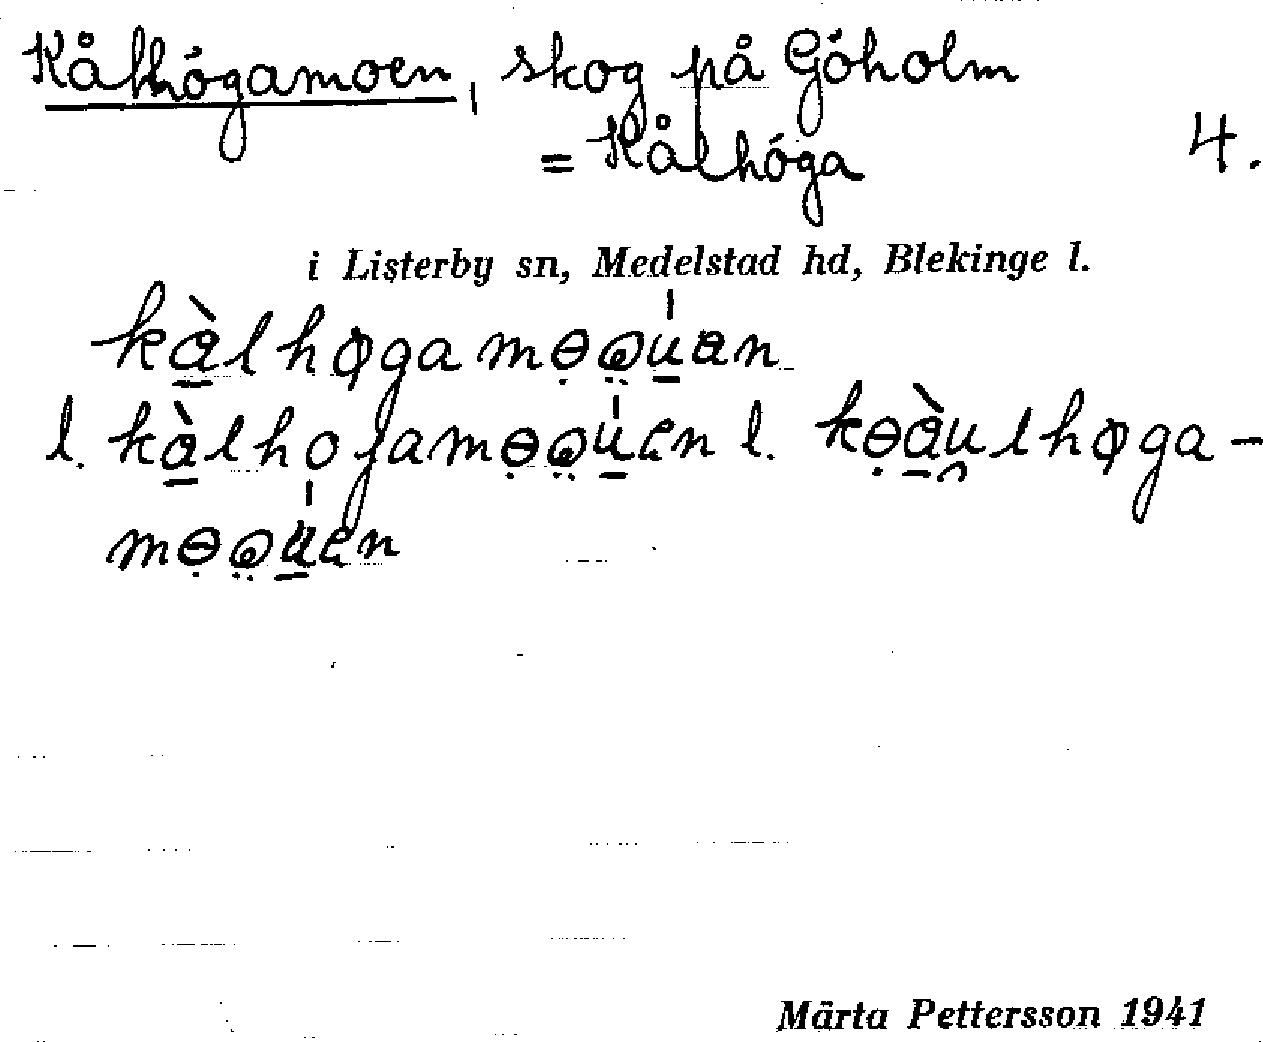 Kålhógamoen, skog på Góholm
= Kålhóga 4.
i Listerby sn, Medelstad hd, Blekinge l.
kàlhøgamɵquan
l. kàlhogamɵquen l. kɵàulhøga-
mɵquen
Märta Pettersson 1941